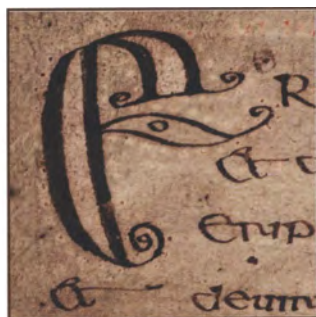 ER
Et
Erup
Et deum